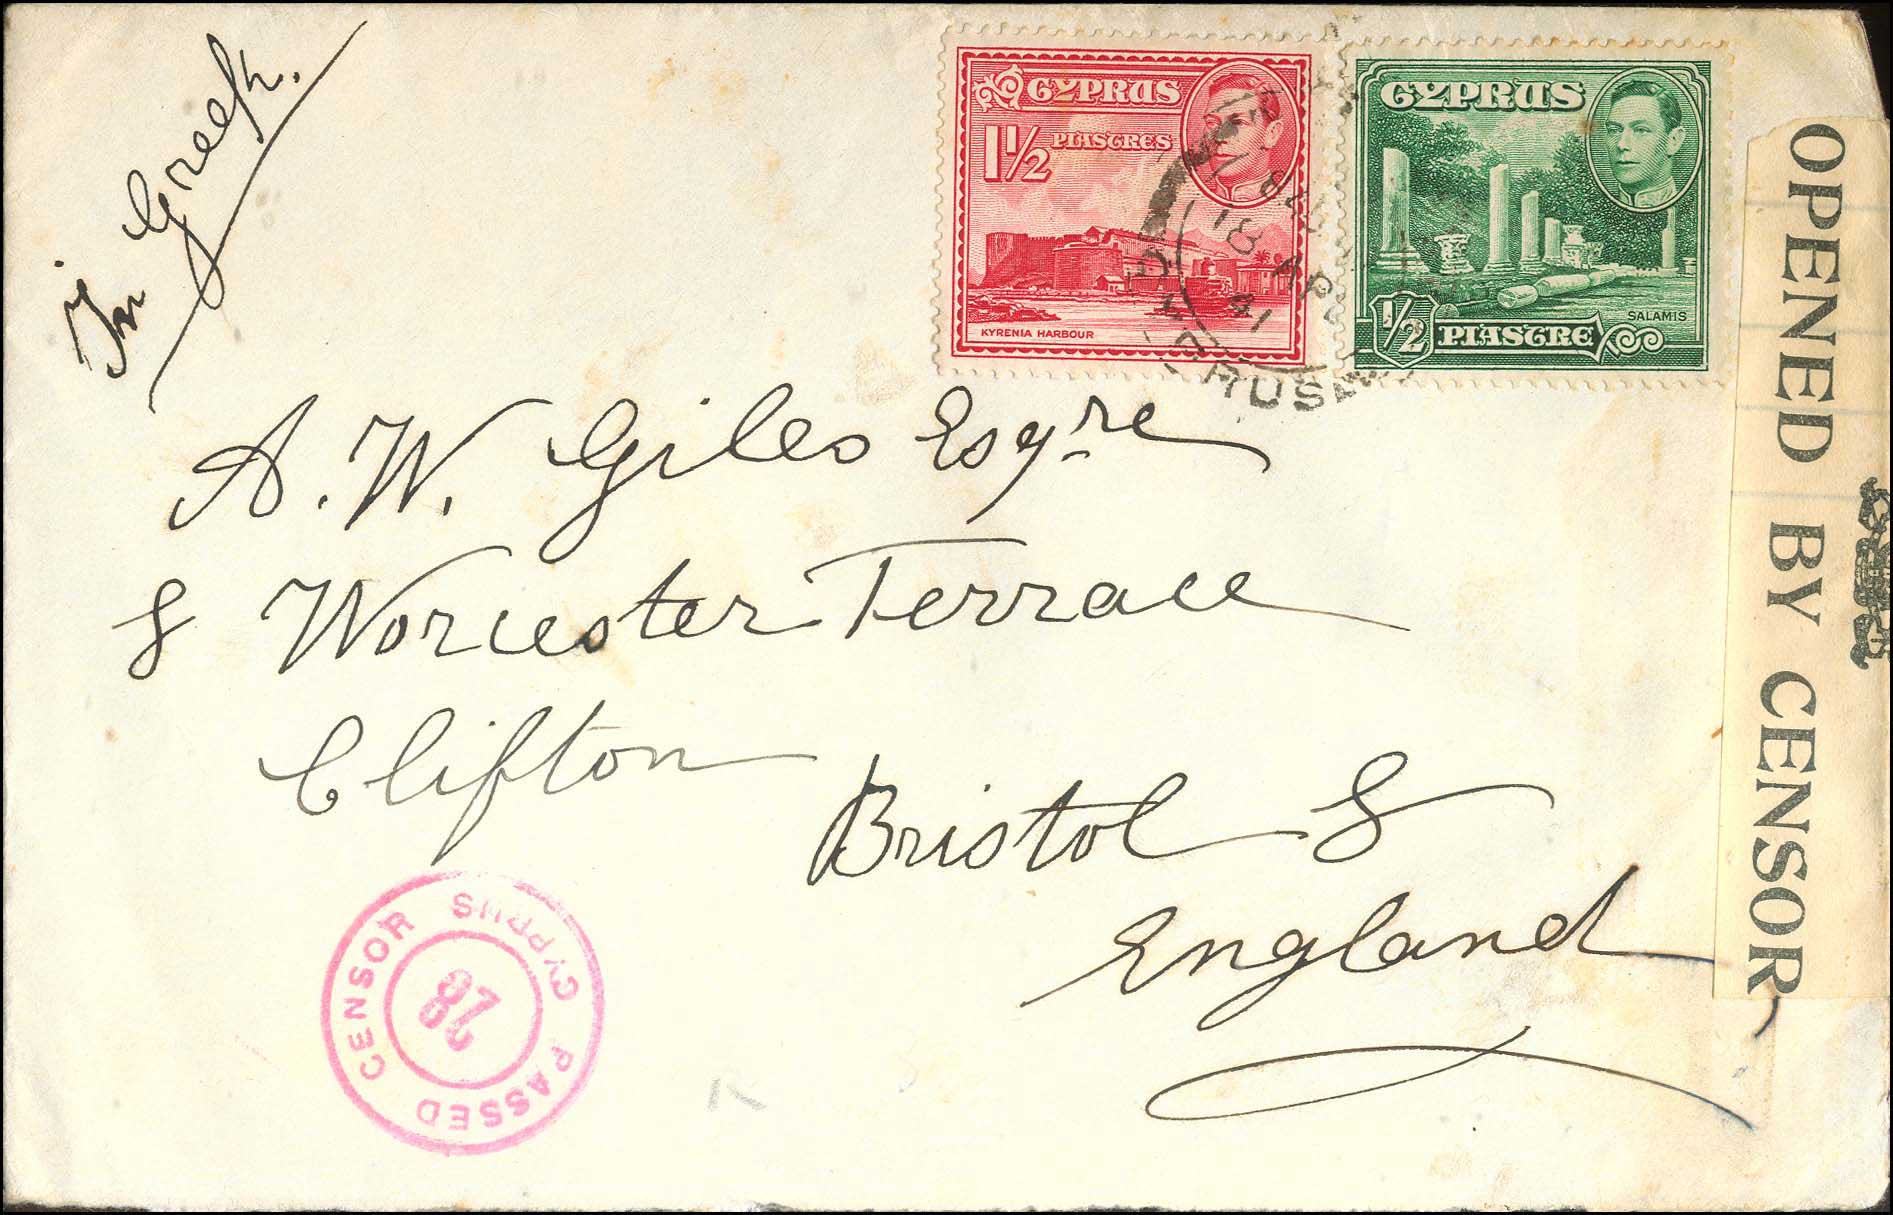 In Greek.
CYPRUS
1½ PIASTRES
KYRENIA HARBOUR
CYPRUS
SALAMIS
½ PIASTRE
18 AP
41
OPENED BY CENSOR
A. W. Giles Esqre
8 Worcester Terrace
Clifton
Bristol 8
England
PASSED CENSOR CYPRUS
28